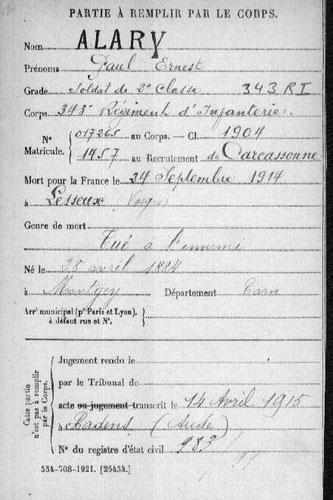 PARTIE À REMPLIR PAR LE CORPS.
Nom ALARY
Prénoms Paul Ernest
Grade Soldat de 2e Classe 343 RI
Corps 343e Régiment d'Infanterie
N° Matricule. 017265 au Corps. — Cl. 1904
1457 au Recrutement de Carcassonne
Mort pour la France le 24 Septembre 1914
à Lesseux Vosges
Genre de mort
Tué à l'ennemi
Né le 28 avril 1884
à Montgey Département Tarn
Arrt municipal (pr Paris et Lyon),
à défaut rue et N°.
Cette partie n'est pas à remplir par le Corps.
Jugement rendu le
par le Tribunal de
acte ou jugement transcrit le 14 Avril 1915
à (Aude)
N° du registre d'état civil 983
534-708-1921. [26434.]